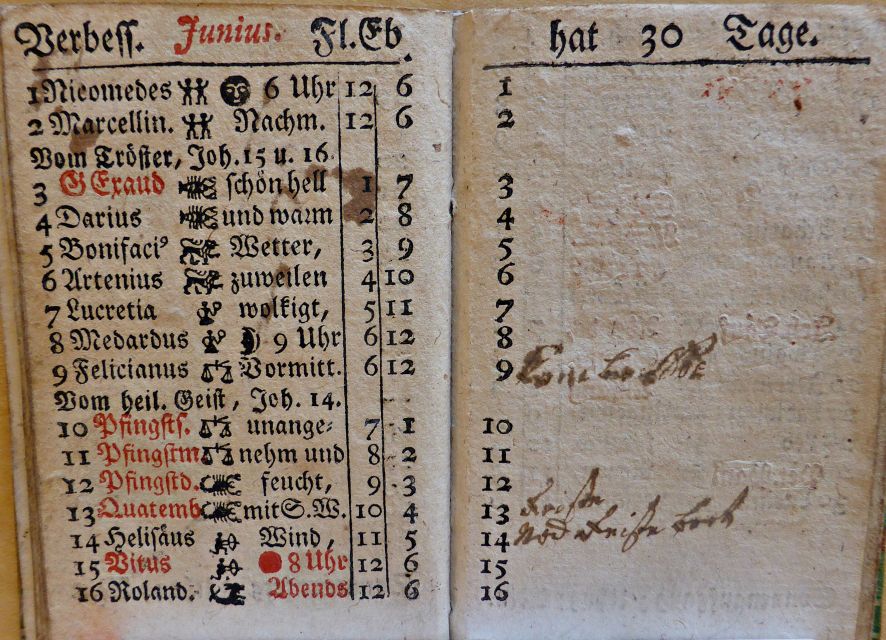 Verbess. Junius. Fl. Eb.
1 Nicomedes 6 Uhr 12 6
2 Marcellin. Nachm. 12 6
Vom Tröster, Joh. 15 u. 16
3 G Exaud schön hell 1 7
4 Darius und warm 2 8
5 Bonifaciꝰ Wetter, 3 9
6 Artenius zuweilen 4 10
7 Lucretia wolkigt, 5 11
8 Medardus 9 Uhr 6 12
9 Felicianus Vormitt. 6 12
Vom heil. Geist, Joh. 14.
10 Pfingsts. unange- 7 1
11 Pfingstm nehm und 8 2
12 Pfingstd. feucht, 9 3
13 Quatemb mit S.W. 10 4
14 Helisäus Wind, 11 5
15 Vitus 8 Uhr 12 6
16 Roland. Abends 12 6
hat 30 Tage.
1
2
3
4
5
6
7
8
9
10
11
12
13
14
15
16